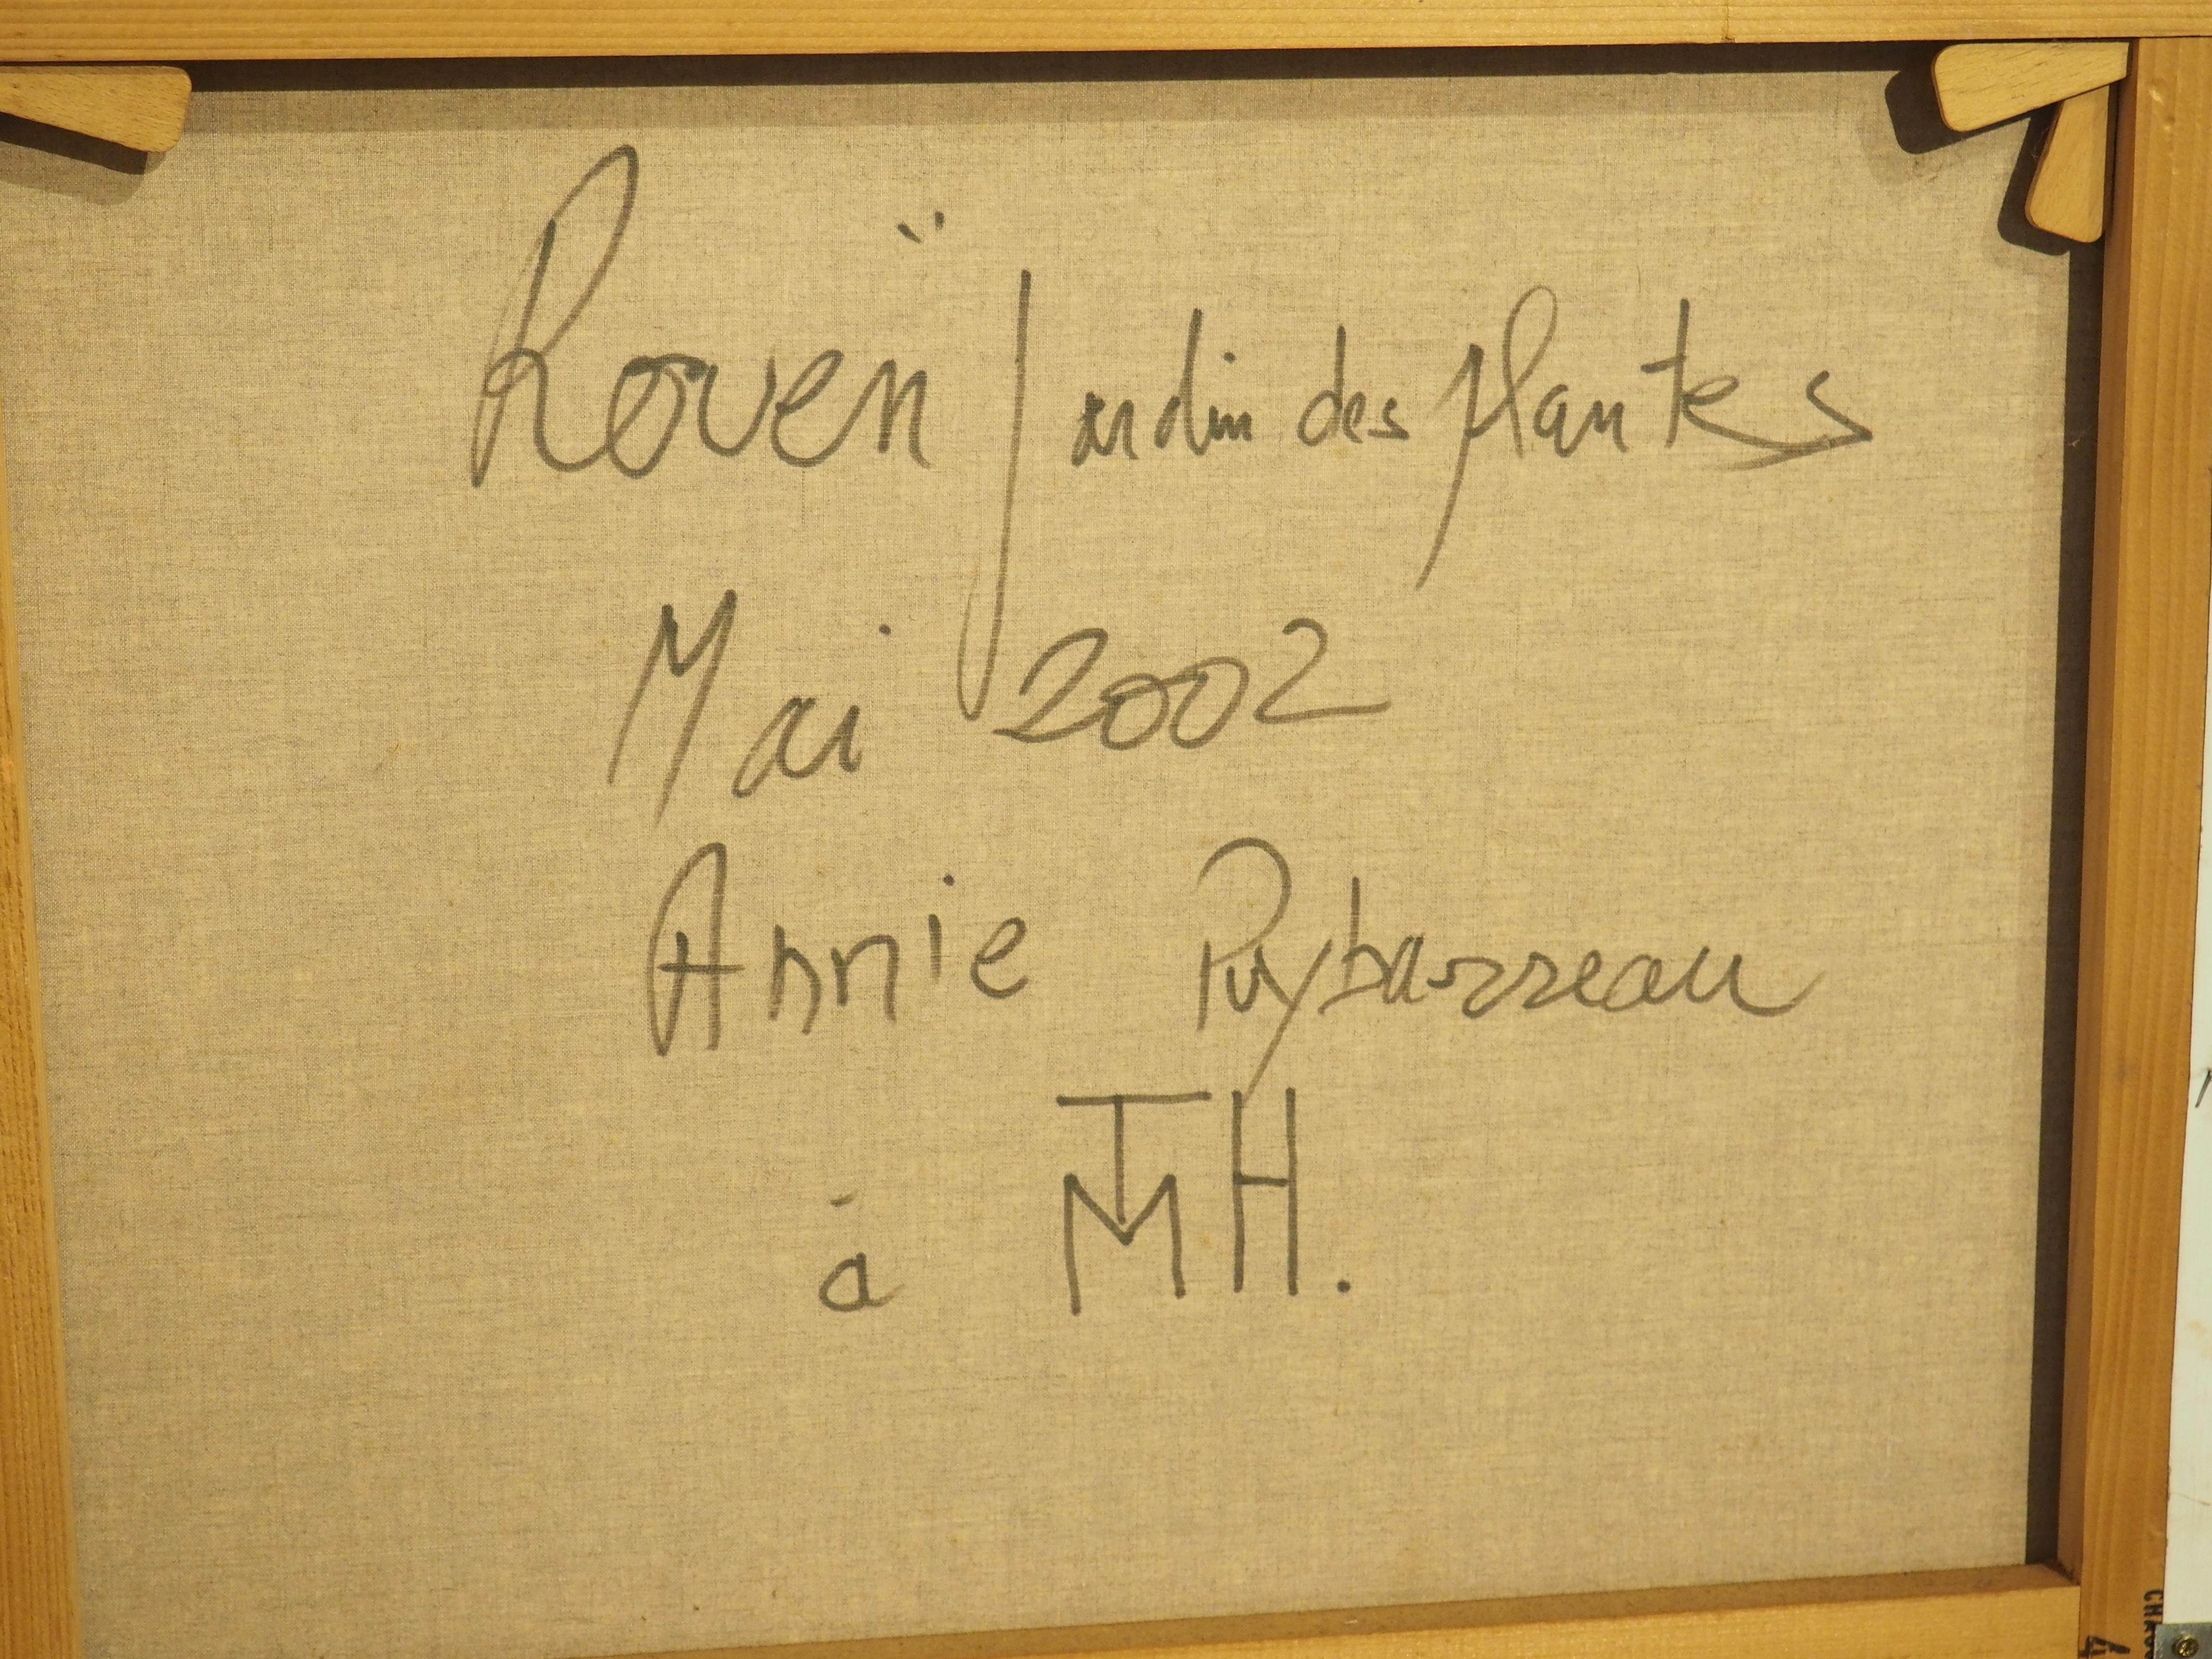 Rouen" Jardin des plantes
Mai 2002
Annie Puybarreau
à TMH.